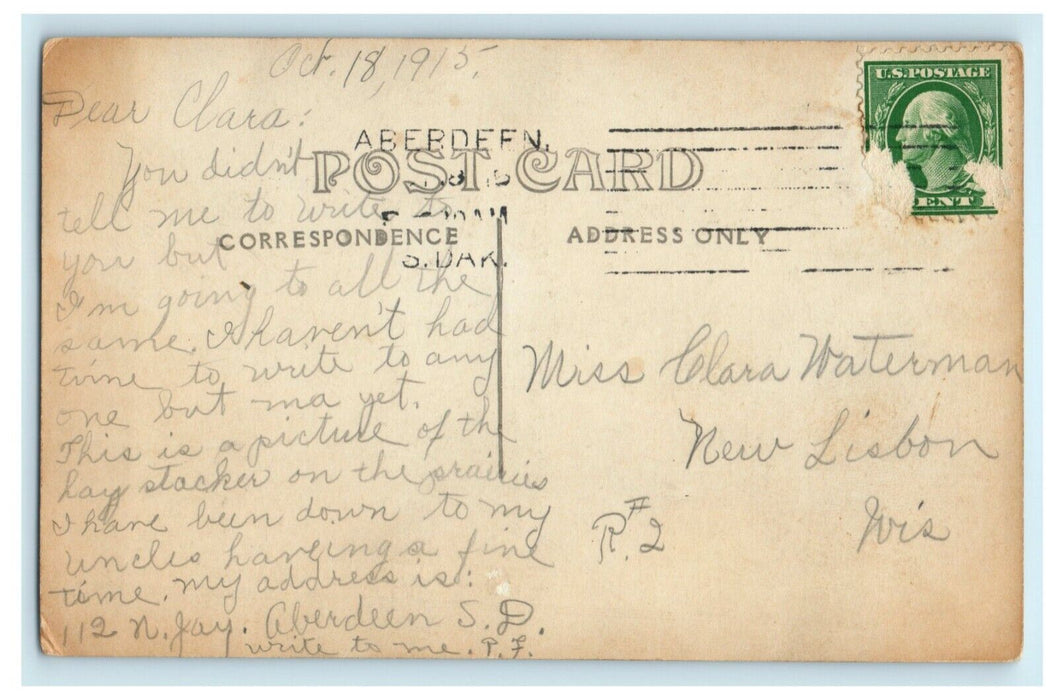 Oct. 18, 1915.
Dear Clara:
You didn't
tell me to write to
you but
I'm going to all the
same. I haven't had
time to write to any
one but ma yet.
This is a picture of the
hay stacker on the prairies
I have been down to my
uncles having a fine
time. my address is:
112 N. Jay. Aberdeen S. D.
write to me. P. F.
POST CARD
CORRESPONDENCE
ADDRESS ONLY
ABERDEEN.
S. DAK.
U.S. POSTAGE
Miss Clara Waterman
New Lisbon
R.#2
Wis